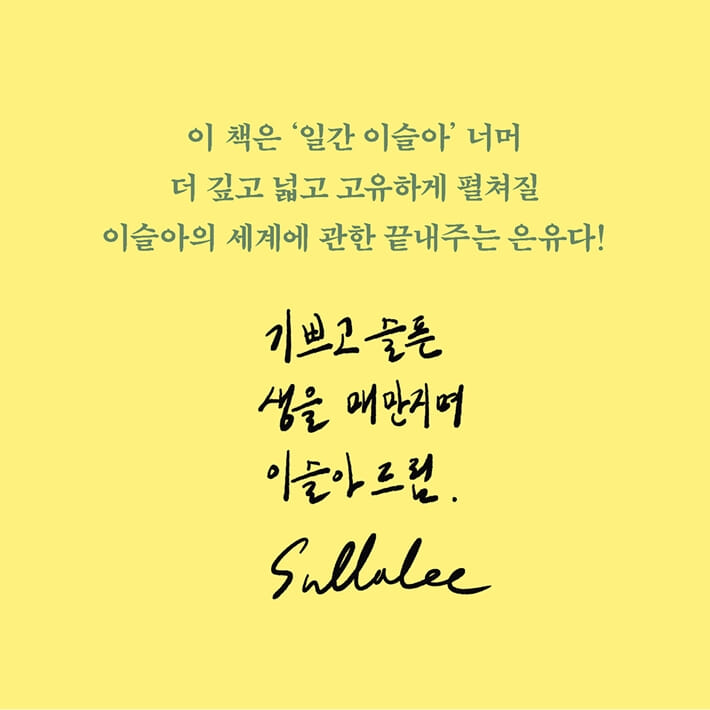 이 책은 ‘일간 이슬아’ 너머
더 깊고 넓고 고유하게 펼쳐질
이슬아의 세계에 관한 끝내주는 은유다!
기쁘고 슬픈
생을 매만지며
이슬아 드림.
Sullalee